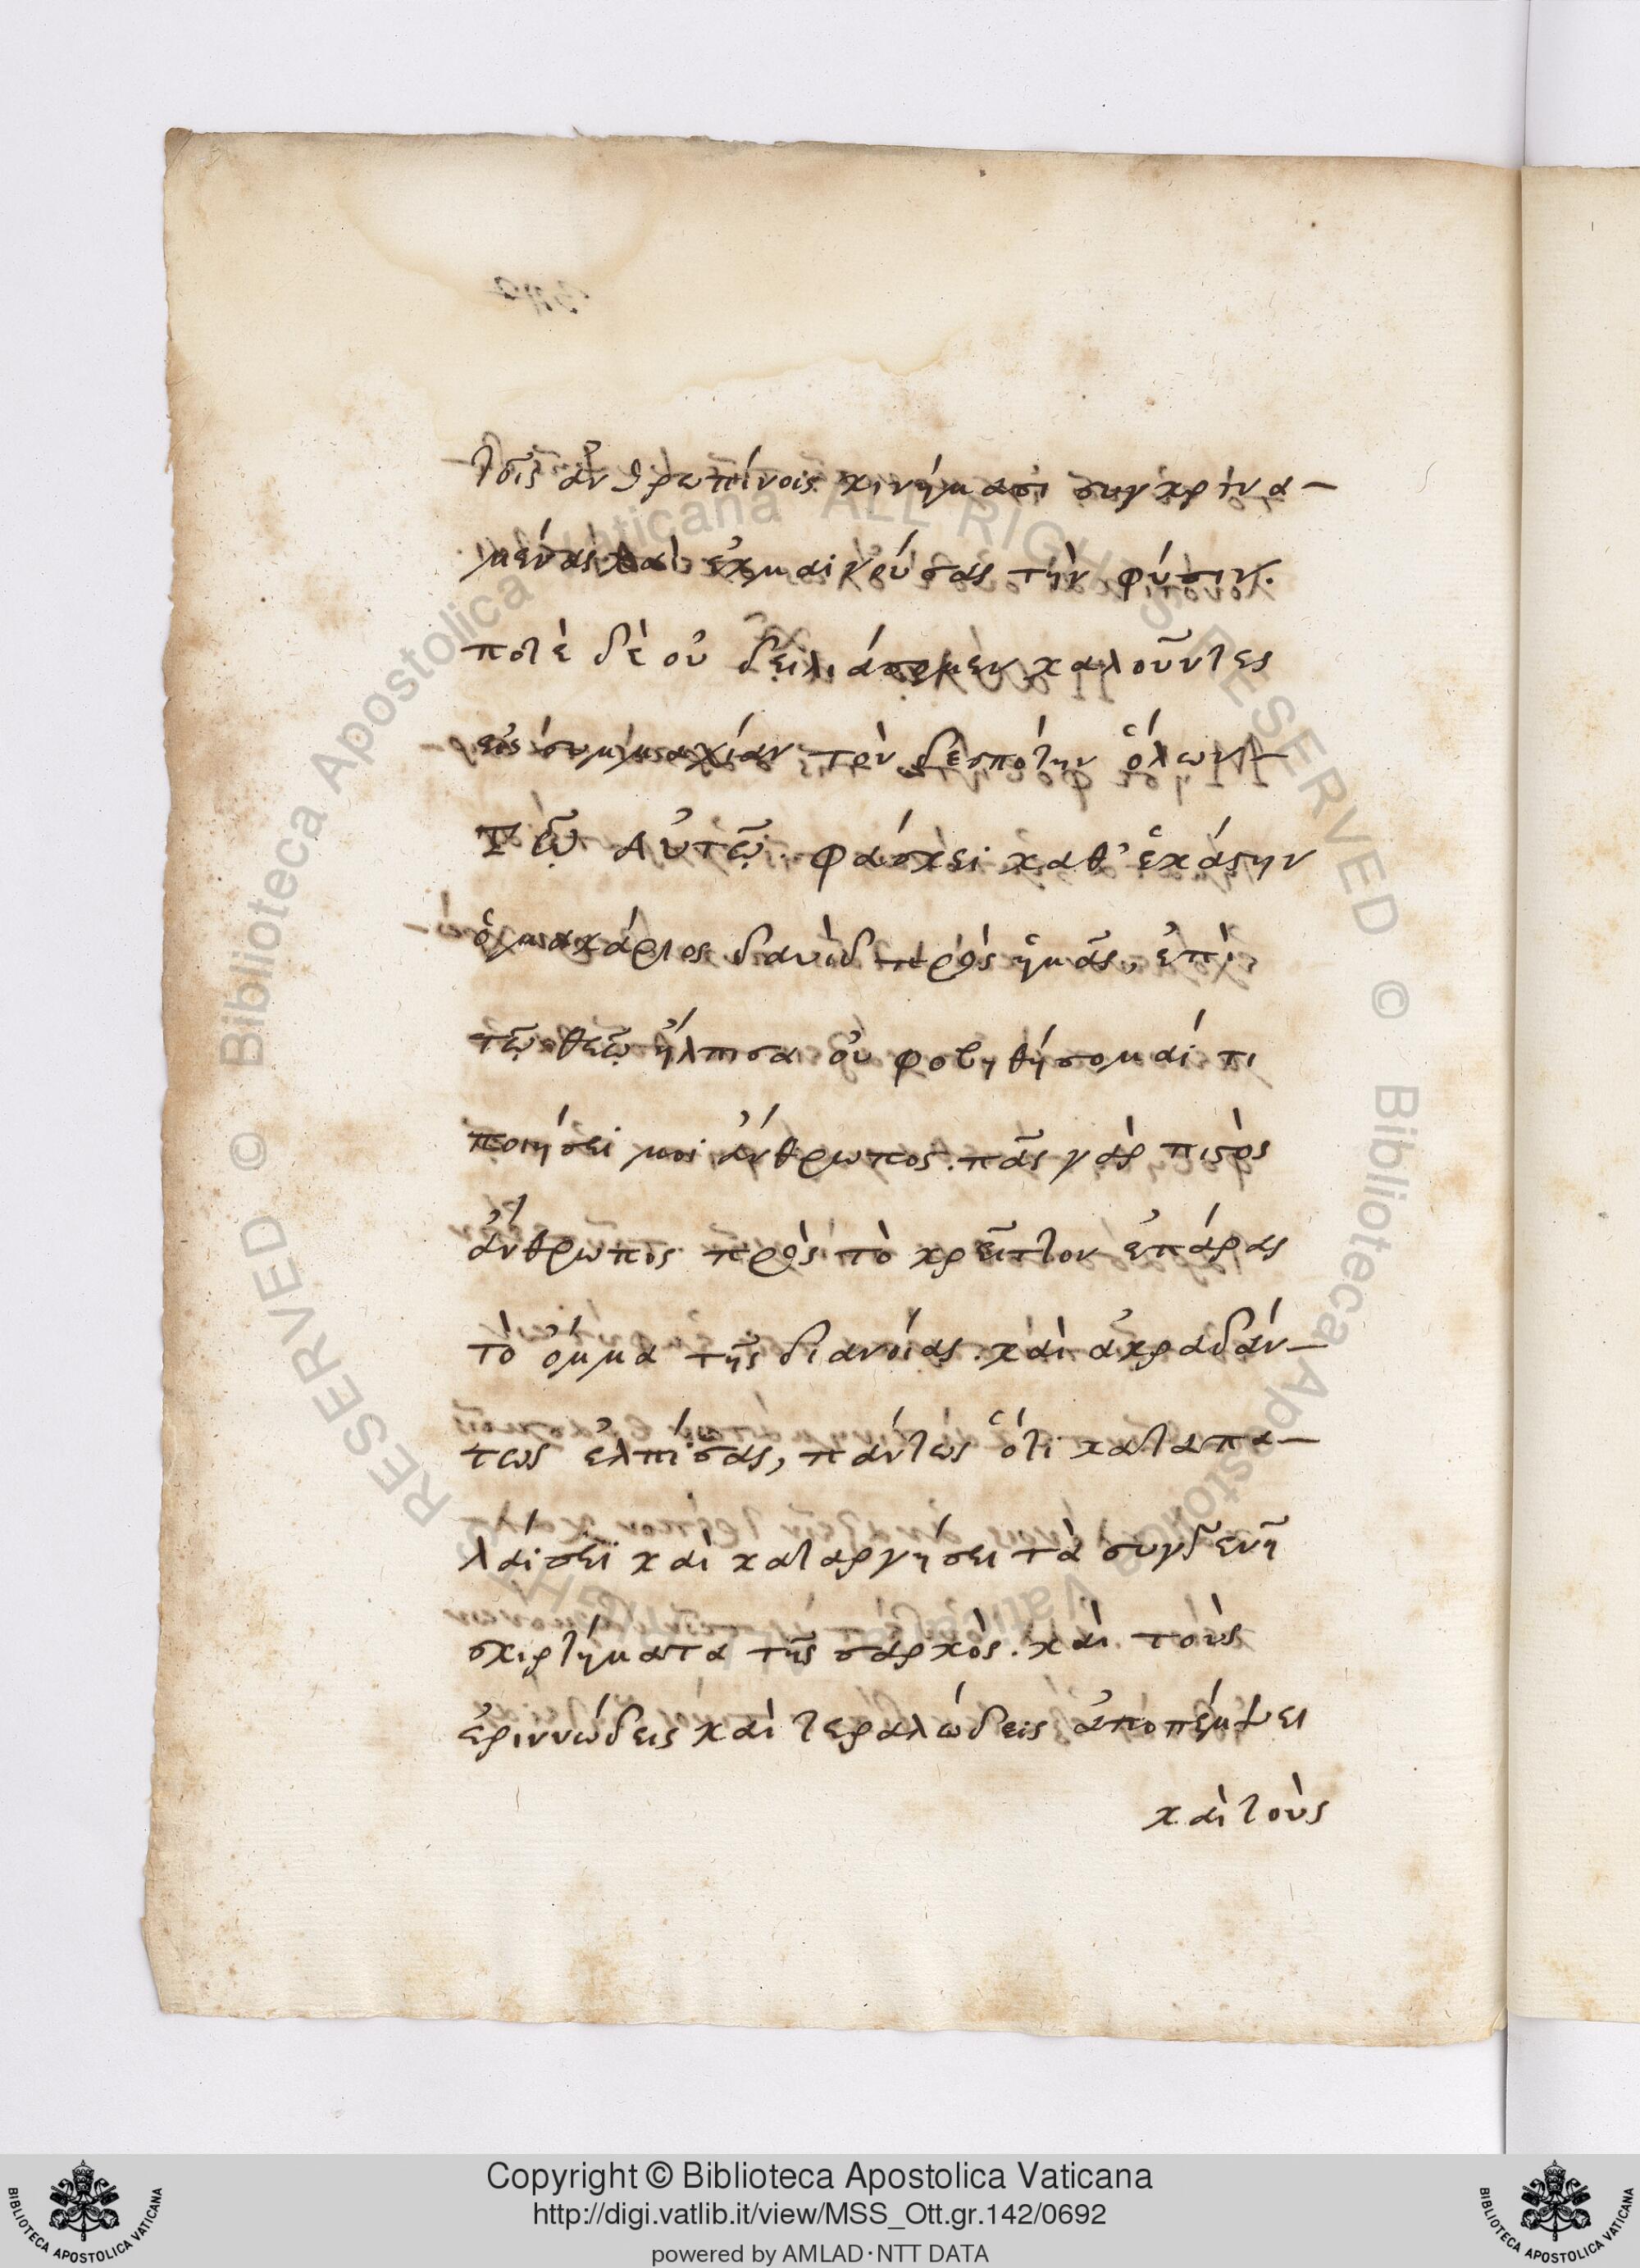 τοῖς ἀνθρωπίνοις κινήμασι συγκρινα-
μένας καὶ ἐκμαινούσας τὴν φύσιν.
ποτὲ δὲ οὐ δειλιάσομεν καλοῦντες
εἰς συμμαχίαν τὸν δεσπότην ὅλων
Τῷ Αὐτῷ. φάσκει καθ' ἑκάστην
ὁ μακάριος δαυὶδ πρὸς ἡμᾶς, ἐπὶ
τῷ θεῷ ἤλπισα οὐ φοβηθήσομαί τι
ποιήσει μοι ἄνθρωπος. πᾶς γὰρ πιστὸς
ἄνθρωπος πρὸς τὸ κρεῖττον ἐπάρας
τὸ ὄμμα τῆς διανοίας. καὶ ἀκραδάν-
τως ἐλπίσας, πάντως ὅτι καταπα-
λαίσει καὶ καταργήσει τὰ συγγενῆ
σκιρτήματα τῆς σαρκὸς. καὶ τοὺς
ἐριννώδεις καὶ τεραλώδεις ἀποπέμψει
καὶ τοὺς
RESERVED © Biblioteca Apostolica Vaticana ALL RIGHTS RESERVED © Biblioteca Apostolica Vaticana
Copyright © Biblioteca Apostolica Vaticana
http://digi.vatlib.it/view/MSS_Ott.gr.142/0692
powered by AMLAD·NTT DATA
BIBLIOTECA APOSTOLICA VATICANA
BIBLIOTECA APOSTOLICA VATICANA